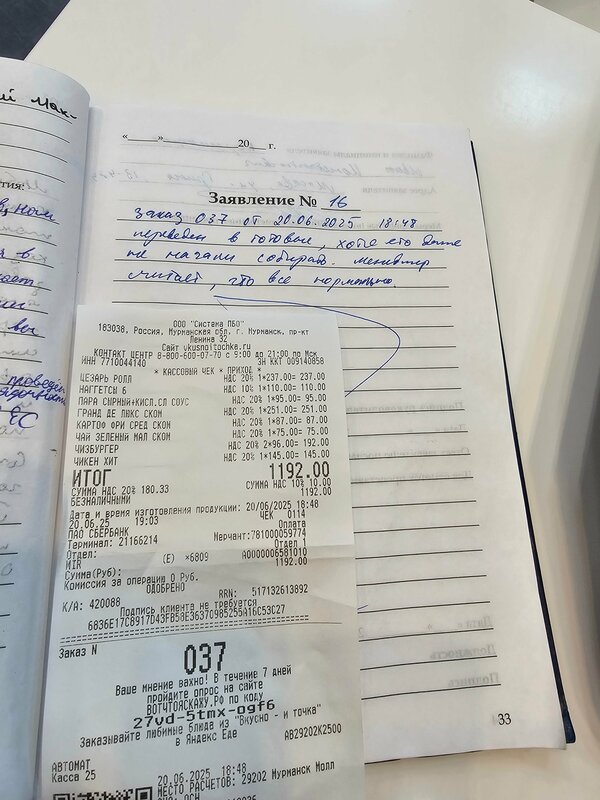 й Мак-
тия:
«___»____________20__ г.
Заявление № 16
Заказ 037 от 20.06.2025 18:48
переведен в готовые, хотя его даже
не начали собирать. Менеджер
считает, что все нормально.
ООО "Система ПБО"
183038, Россия, Мурманская обл, г. Мурманск, пр-кт
Ленина 32
Сайт vkusnoitochka.ru
КОНТАКТ ЦЕНТР 8-800-600-07-70 с 9:00 до 21:00 по Мск
ИНН 7710044140 ЗН ККТ 00914085В
* КАССОВЫЙ ЧЕК * ПРИХОД *
ЦЕЗАРЬ РОЛЛ НДС 20% 1*237.00= 237.00
НАГГЕТСЫ 6 НДС 10% 1*110.00= 110.00
ПАРА СЫРНЫЙ+КИСЛ.СЛ СОУС НДС 20% 1*95.00= 95.00
ГРАНД ДЕ ЛЮКС СКОМ НДС 20% 1*251.00= 251.00
КАРТОФ ФРИ СРЕД СКОМ НДС 20% 1*87.00= 87.00
ЧАЙ ЗЕЛЕНЫЙ МАЛ СКОМ НДС 20% 1*75.00= 75.00
ЧИЗБУРГЕР НДС 20% 2*96.00= 192.00
ЧИКЕН ХИТ НДС 20% 1*145.00= 145.00
ИТОГ 1192.00
СУММА НДС 20% 180.33 СУММА НДС 10% 10.00
БЕЗНАЛИЧНЫМИ 1192.00
Дата и время изготовления продукции: 20/06/2025 18:48
20.06.25 19:03 ЧЕК 0114
ПАО СБЕРБАНК Оплата
Терминал: 21166214 Мерчант:781000059774
Отдел: Отдел 1
MIR (E) *6809 A0000006581010
Сумма(Руб): 1192.00
Комиссия за операцию 0 Руб.
ОДОБРЕНО
К/А: 420088 RRN: 517132613892
Подпись клиента не требуется
6836E17C8917D43FB58E36370985255A16C53C27
Заказ N
037
Ваше мнение важно! В течение 7 дней
пройдите опрос на сайте
ВОТЧТОЯСКАЖУ.РФ по коду
27vd-5tmx-ogf6
Заказывайте любимые блюда из "Вкусно - и точка"
в Яндекс Еде
АВ29202К2500
АВТОМАТ
Касса 25 20.06.2025 18:48
МЕСТО РАСЧЕТОВ: 29202 Мурманск Молл
33